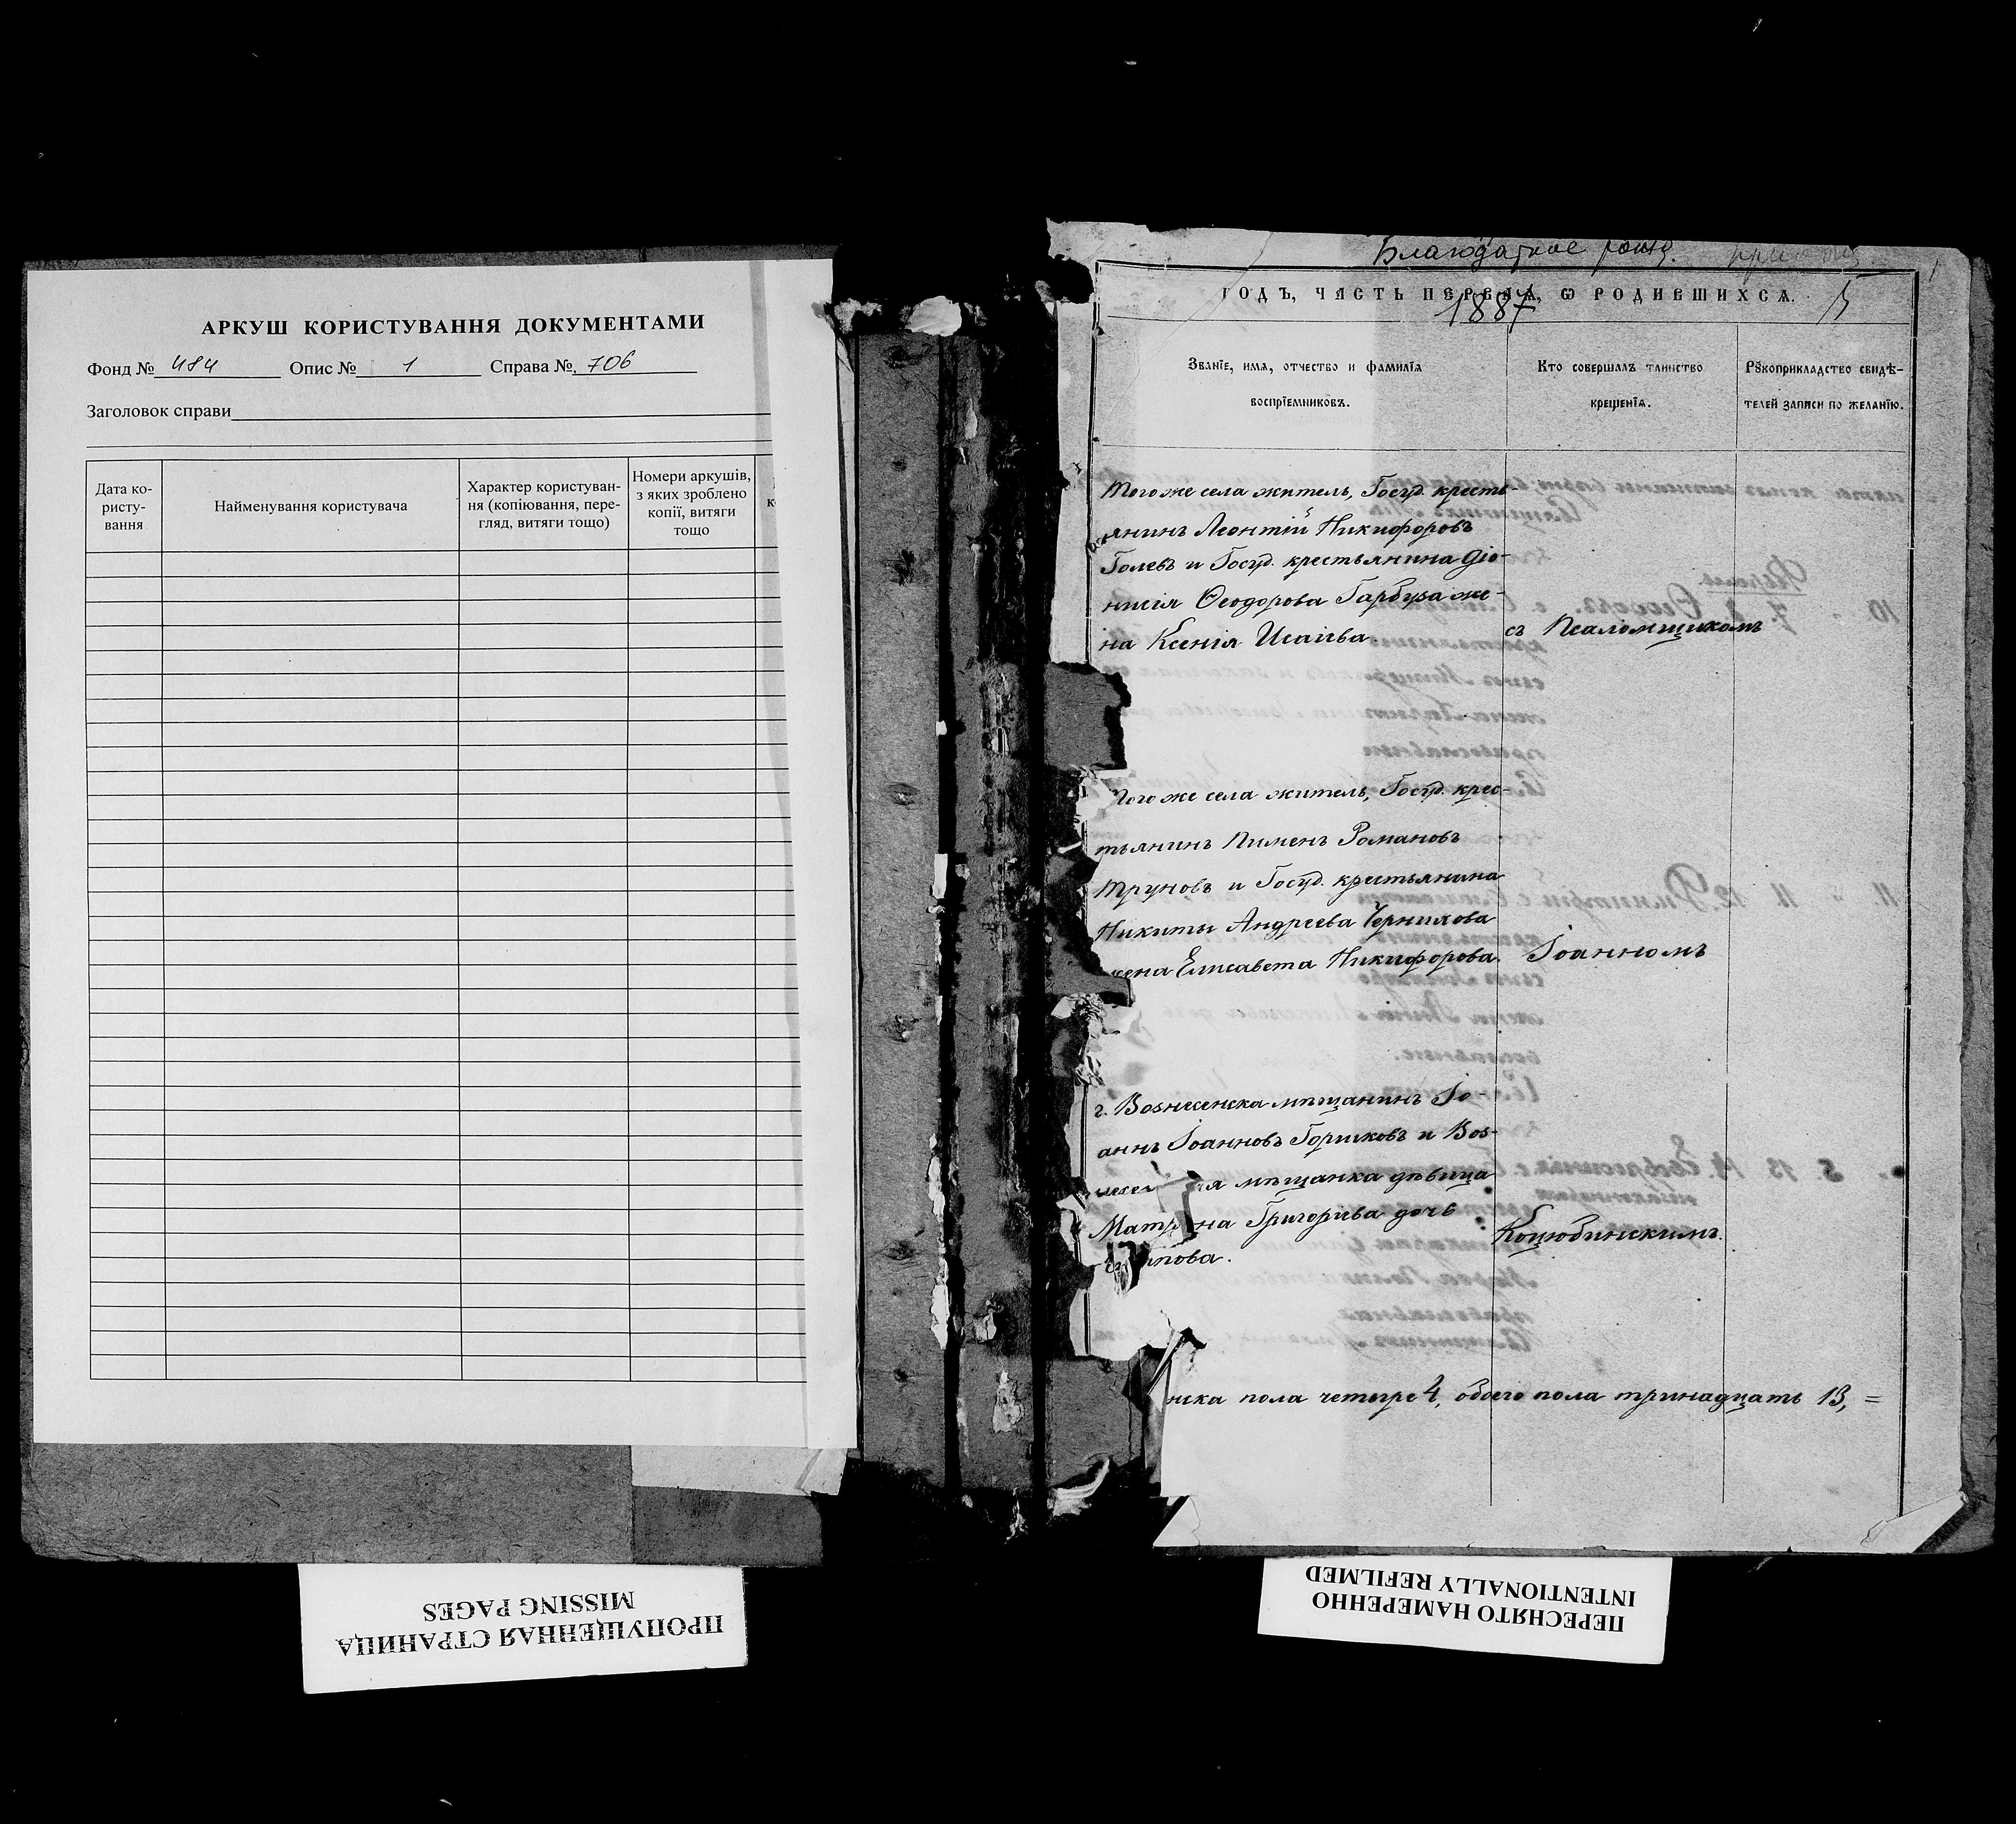 АРКУШ КОРИСТУВАННЯ ДОКУМЕНТАМИ
Фонд № 484 Опис № 1 Справа №. 706
Заголовок справи
Дата ко-
ристу-
вання
Найменування користувача
Характер користуван-
ня (копіювання, пере-
гляд, витяги тощо)
Номери аркушів,
з яких зроблено
копії, витяги
тощо
ПРОПУЩЕННАЯ СТРАНИЦА
MISSING PAGES
Благодатное рожд.
ГОДЪ, ЧАСТЬ ПЕРВАЯ, Ѡ РОДИВШИХСѦ. 5
1887
Званїе, имѧ, отчество и фамилїѧ
воспрїемниковъ.
Кто совершалъ таинство
крещенїѧ.
Рꙋкоприкладство свидѣ-
телей записи по желанїю.
Того же села житель, Госуд. кресть-
янинъ Леонтій Никифоровъ
Голевъ и Госуд. крестьянина Діо-
нисія Ѳеодорова Гарбуза же-
на Ксенія Исаіева.
съ Псаломщикомъ
Того же села житель, Госуд. крес-
тьянинъ Пименъ Романовъ
Труновъ и Госуд. крестьянина
Никиты Андреева Чернилова
жена Елисавета Никифорова.
Іоанномъ
г. Вознесенска мѣщанинъ Іо-
аннъ Іоанновъ Горшковъ и Воз-
мѣщанка дѣвица
Матрона Григоріева дочь
Коцюбинскимъ.
нска пола четыре 4, обоего пола тринадцать 13, =
ПЕРЕСНЯТО НАМЕРЕННО
INTENTIONALLY REFILMED